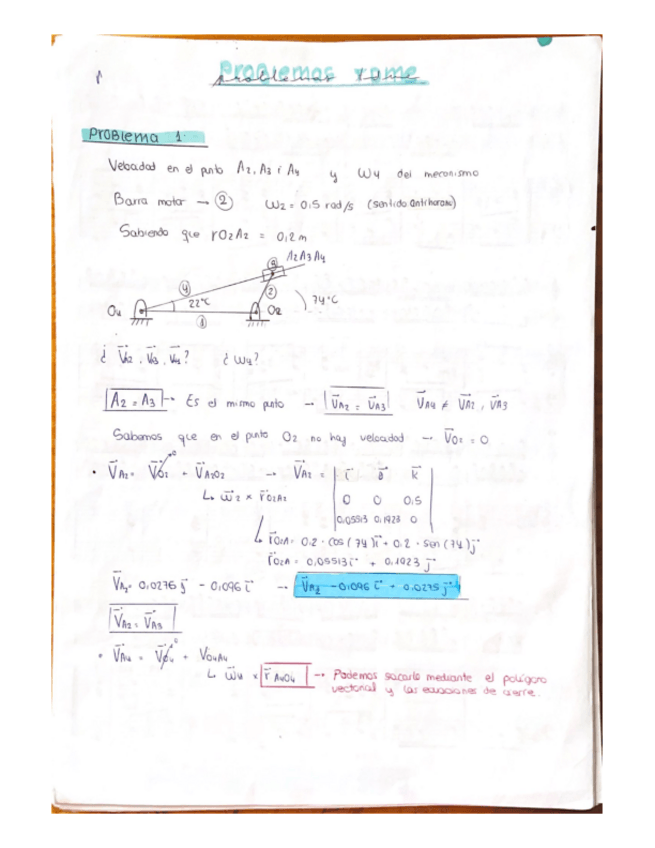 Problemas tdme
Problema 1.
Velocidad en el punto A2, A3 y A4 y ω4 del mecanismo
Barra motor → ② ω2 = 0,5 rad/s (sentido antihorario)
Sabiendo que rO2A2 = 0,2 m
A2 A3 A4
③
④
②
22°C
74°C
O4
O2
①
¿ V⃗A2, V⃗A3, V⃗A4? ¿ω4?
A2 = A3 → Es el mismo punto → V⃗A2 = V⃗A3 V⃗A4 ≠ V⃗A2, V⃗A3
Sabemos que en el punto O2 no hay velocidad → V⃗O2 = 0
• V⃗A2 = V⃗O2 + V⃗A2O2 → V⃗A2 = | i⃗ j⃗ k⃗ |
↳ ω⃗2 × r⃗O2A2 0 0 0.5
0,05513 0,1923 0
↳ r⃗O2A = 0.2 · cos(74)i⃗ + 0.2 · sen(74)j⃗
r⃗O2A = 0,05513i⃗ + 0,1923j⃗
V⃗A2 = 0,0276 j⃗ - 0,096 i⃗ → V⃗A2 = -0,096 i⃗ + 0,0275 j⃗
V⃗A2 = V⃗A3
• V⃗A4 = V⃗O4 + VO4A4
↳ ω⃗4 × r⃗A4O4 → Podemos sacarlo mediante el polígono
vectorial y las ecuaciones de cierre.